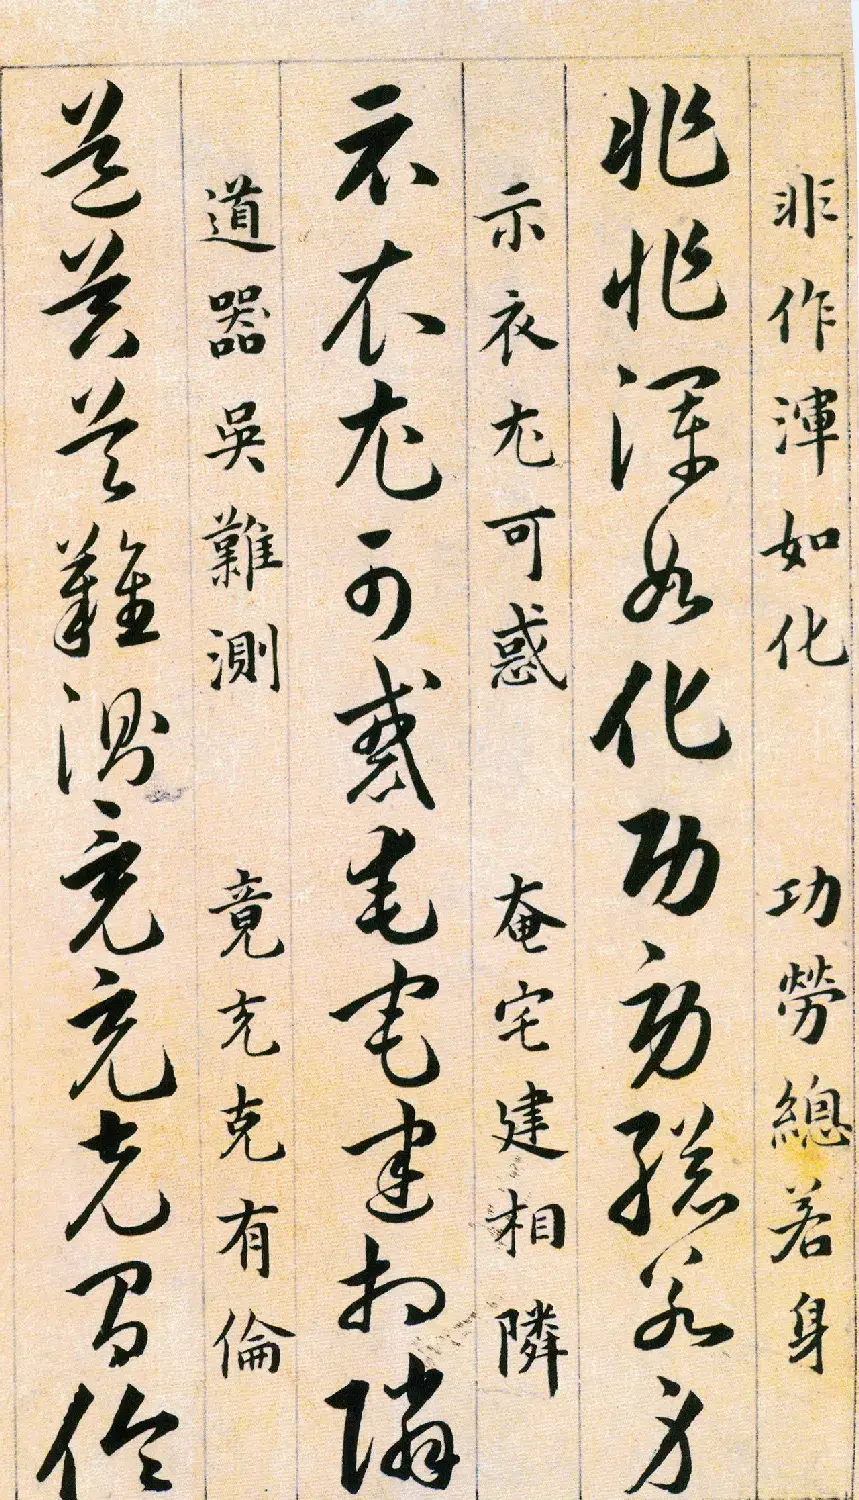 非作渾如化　功勞總若身
非作渾如化功勞總若身
示衣尤可惑　奄宅建相隣
示衣尤可惑奄宅建相隣
道器吳難測　竟充克有倫
道器吳難測竟充克有倫